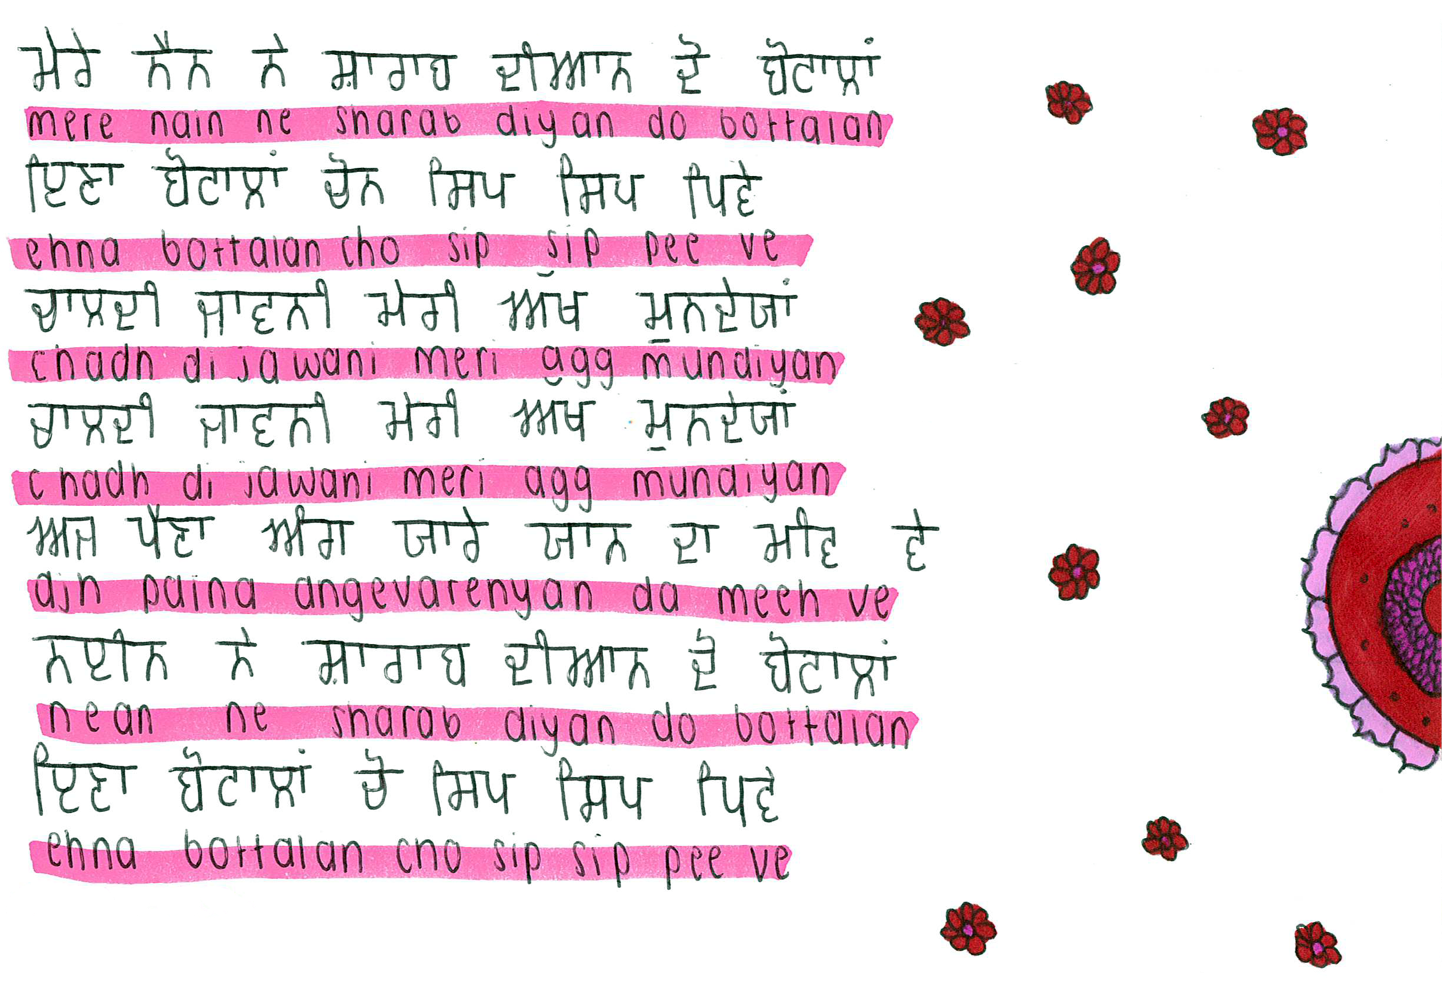 ਮੇਰੇ ਨੈਨ ਨੇ ਸ਼ਾਰਾਬ ਦੀਆਨ ਦੋ ਬੋਟਾਲਾਂ
mere nain ne sharab diyan do bottalan
ਇਣਾ ਬੋਟਾਲਾਂ ਚੋਨ ਸਿਪ ਸਿਪ ਪਿਵੇ
ehna bottalan cho sip sip pee ve
ਚਾਲਦੀ ਜਾਵਾਨੀ ਮੇਰੀ ਅੱਖ ਮੁਨਦੇਯਾਂ
chadh di jawani meri agg mundiyan
ਚਾਲਦੀ ਜਾਵਾਨੀ ਮੇਰੀ ਅੱਖ ਮੁਨਦੇਯਾਂ
chadh di jawani meri agg mundiyan
ਅਜ ਪੈਣਾ ਅੰਗ ਯਾਰੇ ਯਾਨ ਦਾ ਮੀਂਵ ਵੇ
ajh paina angevarenyan da meeh ve
ਨਈਨ ਨੇ ਸ਼ਾਰਾਬ ਦੀਆਨ ਦੋ ਬੋਟਾਲਾਂ
nean ne sharab diyan do bottalan
ਇਣਾ ਬੋਟਾਲਾਂ ਚੋ ਸਿਪ ਸਿਪ ਪਿਵੇ
ehna bottalan cho sip sip pee ve